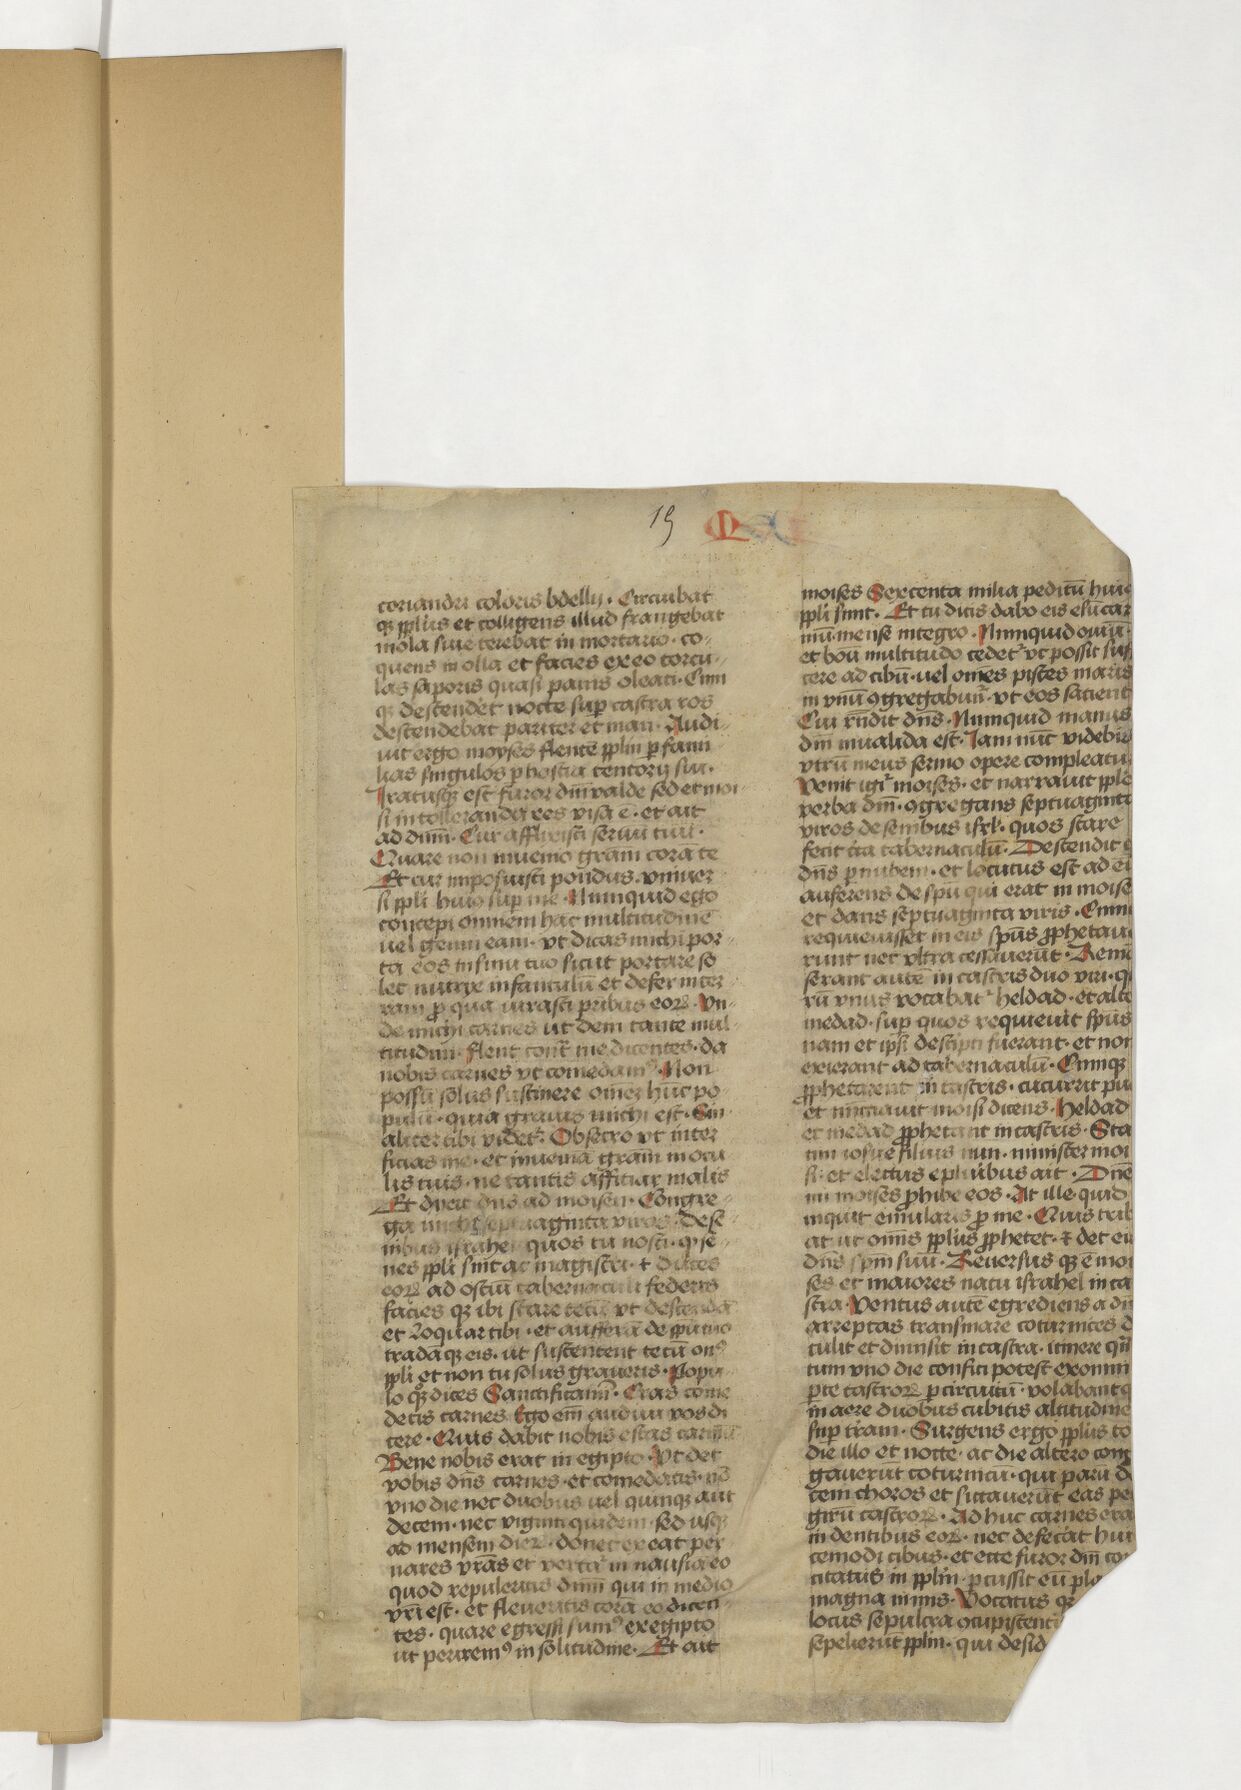 19 M
coriandri coloris bdellij · Circuibat
qꝫ pplūs et colligens illud frangebat
mola siue terebat in mortario · co-
quens in olla et facies ex eo tortu-
las saporis quasi panis oleati · Cum
qꝫ descenderet nocte sup castra ros
descendebat pariter et man · Audi-
uit ergo moyses flentē pplm p fami
lias singulos p hostia tentorij sui ·
Iratusqꝫ est furor dn̄i valde sed et moi
si intolleranda res visa ē · et ait
ad dn̄m · Cur afflixisti seruū tuū ·
Quare non inuenio grām corā te
Et cur imposuisti pondus vniuer
si ppli huiꝰ sup me · Numquid ego
concepi omnem hāc multitudinē
uel genui eam · vt dicas michi por-
ta eos in sinu tuo sicut portare so
let nutrix infanculū et defer in ter
ram p qua iurasti p̄ribus eoꝝ · Vn-
de michi carnes ut dem tante mul-
titudini · flent cont̄ me dicentes · da
nobis carnes vt comedamꝰ · Non
possū solus sustinere om̄em hūc po-
pulū · quia grauis michi est · Sin
aliter tibi videt᷑ · Obsecro vt inter
ficias me · et inueniā grām in ocu
lis tuis · ne tantis afficiar malis
Et dixit dn̄s ad moisen · Congre-
ga michi septuaginta viros · de se-
nibus israhel quos tu nosti · qꝫ se-
nes ppli sint ac magistri · ⁊ duces
eoꝝ ad ostiū tabernaculi federis
facies qꝫ ibi stare tecū vt descendā
et loquar tibi · et aufferā de sp̄u tuo
tradā qꝫ eis · ut sustentent tecū onꝰ
ppli et non tu solus graueris · Popu-
lo qꝫ dices Sanctificam̄ · Cras come
detis carnes Ego em̄ audiui vos di
cere · Quis dabit nobis escas carniū
Bene nobis erat in egipto · Vt det
vobis dn̄s carnes · et comedatis · nō
vno die nec duobus uel quinqꝫ aut
decem · nec viginti quidem · sed usqꝫ
ad mensem dieꝝ · donec exeat per
nares vrās et vertat᷑ in nausia eo
quod repuleritis dn̄m qui in medio
vri est · et fleueritis corā eo dicen-
tes · quare egressi sumꝰ ex egipto
ut periremꝰ in solitudine · Et ait
moises Sexcenta milia peditū huiꝰ
ppli sunt · Et tu dicis dabo eis esū car
niū mense integro · Numquid ouiū
et boū multitudo cedet᷑ vt possit suf
cere ad cibū · uel om̄es pisces maris
in vnū ꝯgregabunt᷑ · vt eos sacient
Cui rn̄dit dn̄s · Numquid manus
dn̄i inualida est · Iam nūc videbis
vtrū meus sermo opere compleatu
Venit igr̄ moises · et narrauit pplo
verba dn̄i · ꝯgregans septuaginta
viros de senibus isrl · quos stare
fecit circa tabernaculū · Descendit
dn̄s p nubem · et locutus est ad eū
auferens de sp̄u qui erat in moise
et dans septuaginta viris · Cumqꝫ
requieuisset in eis sp̄us pphetaue
runt nec vltra cessauerūt · Reman
serant autē in castris duo viri · q
rū vnus vocabat᷑ heldad · et alter
medad · sup quos requieuit sp̄us
nam et ipsi descripti fuerant · et non
exierant ad tabernaculū · Cumqꝫ
pphetarent in castris · cucurrit pu
et nūciauit moisi dicens · Heldad
et medad pphetant in castris · Sta
tim iosue filius nun · minister moi
si · et electus e pluribus ait · Dn̄e
mi moises phibe eos · At ille · quid
inquit emularis p me · Quis trib
at ut om̄is pplūs pphetet · ⁊ det eis
dn̄s spm̄ suū · Reuersus qꝫ ē moi
ses et maiores natu israhel in ca
stra · Ventus autē egrediens a dn̄o
arreptas transmare coturnices d
tulit et dimisit in castra · itinere qn̄
tum vno die confici potest ex omni
pte castroꝝ p circuitū · volabantqꝫ
in aere duobus cubitis altitudine
sup trām · Surgens ergo pplūs to
die illo et nocte · ac die altero con
gauerūt coturnicū · qui parū de
cem choros et siccauerūt eas per
girū castroꝝ · Ad huc carnes era
in dentibus eoꝝ · nec defecat hui
cemodi cibus · et ecce furor dn̄i con
citatus in pplm · pcussit eū pla
magna nimis · Vocatus qꝫ
locus sepulcra ꝯcupiscenti
sepelierūt pplm · qui desid